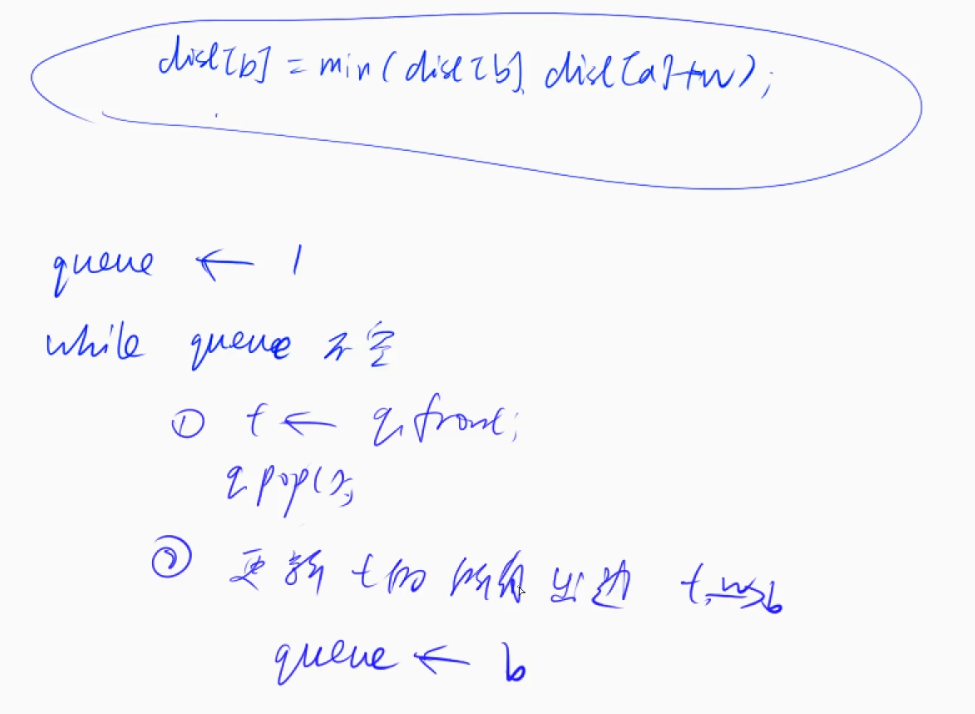 dist[b] = min(dist[b], dist[a]+w);
queue ← 1
while queue 不空
① t ← q.front;
q.pop();
② 更新 t的 所有 出边 t -w-> b
queue ← b